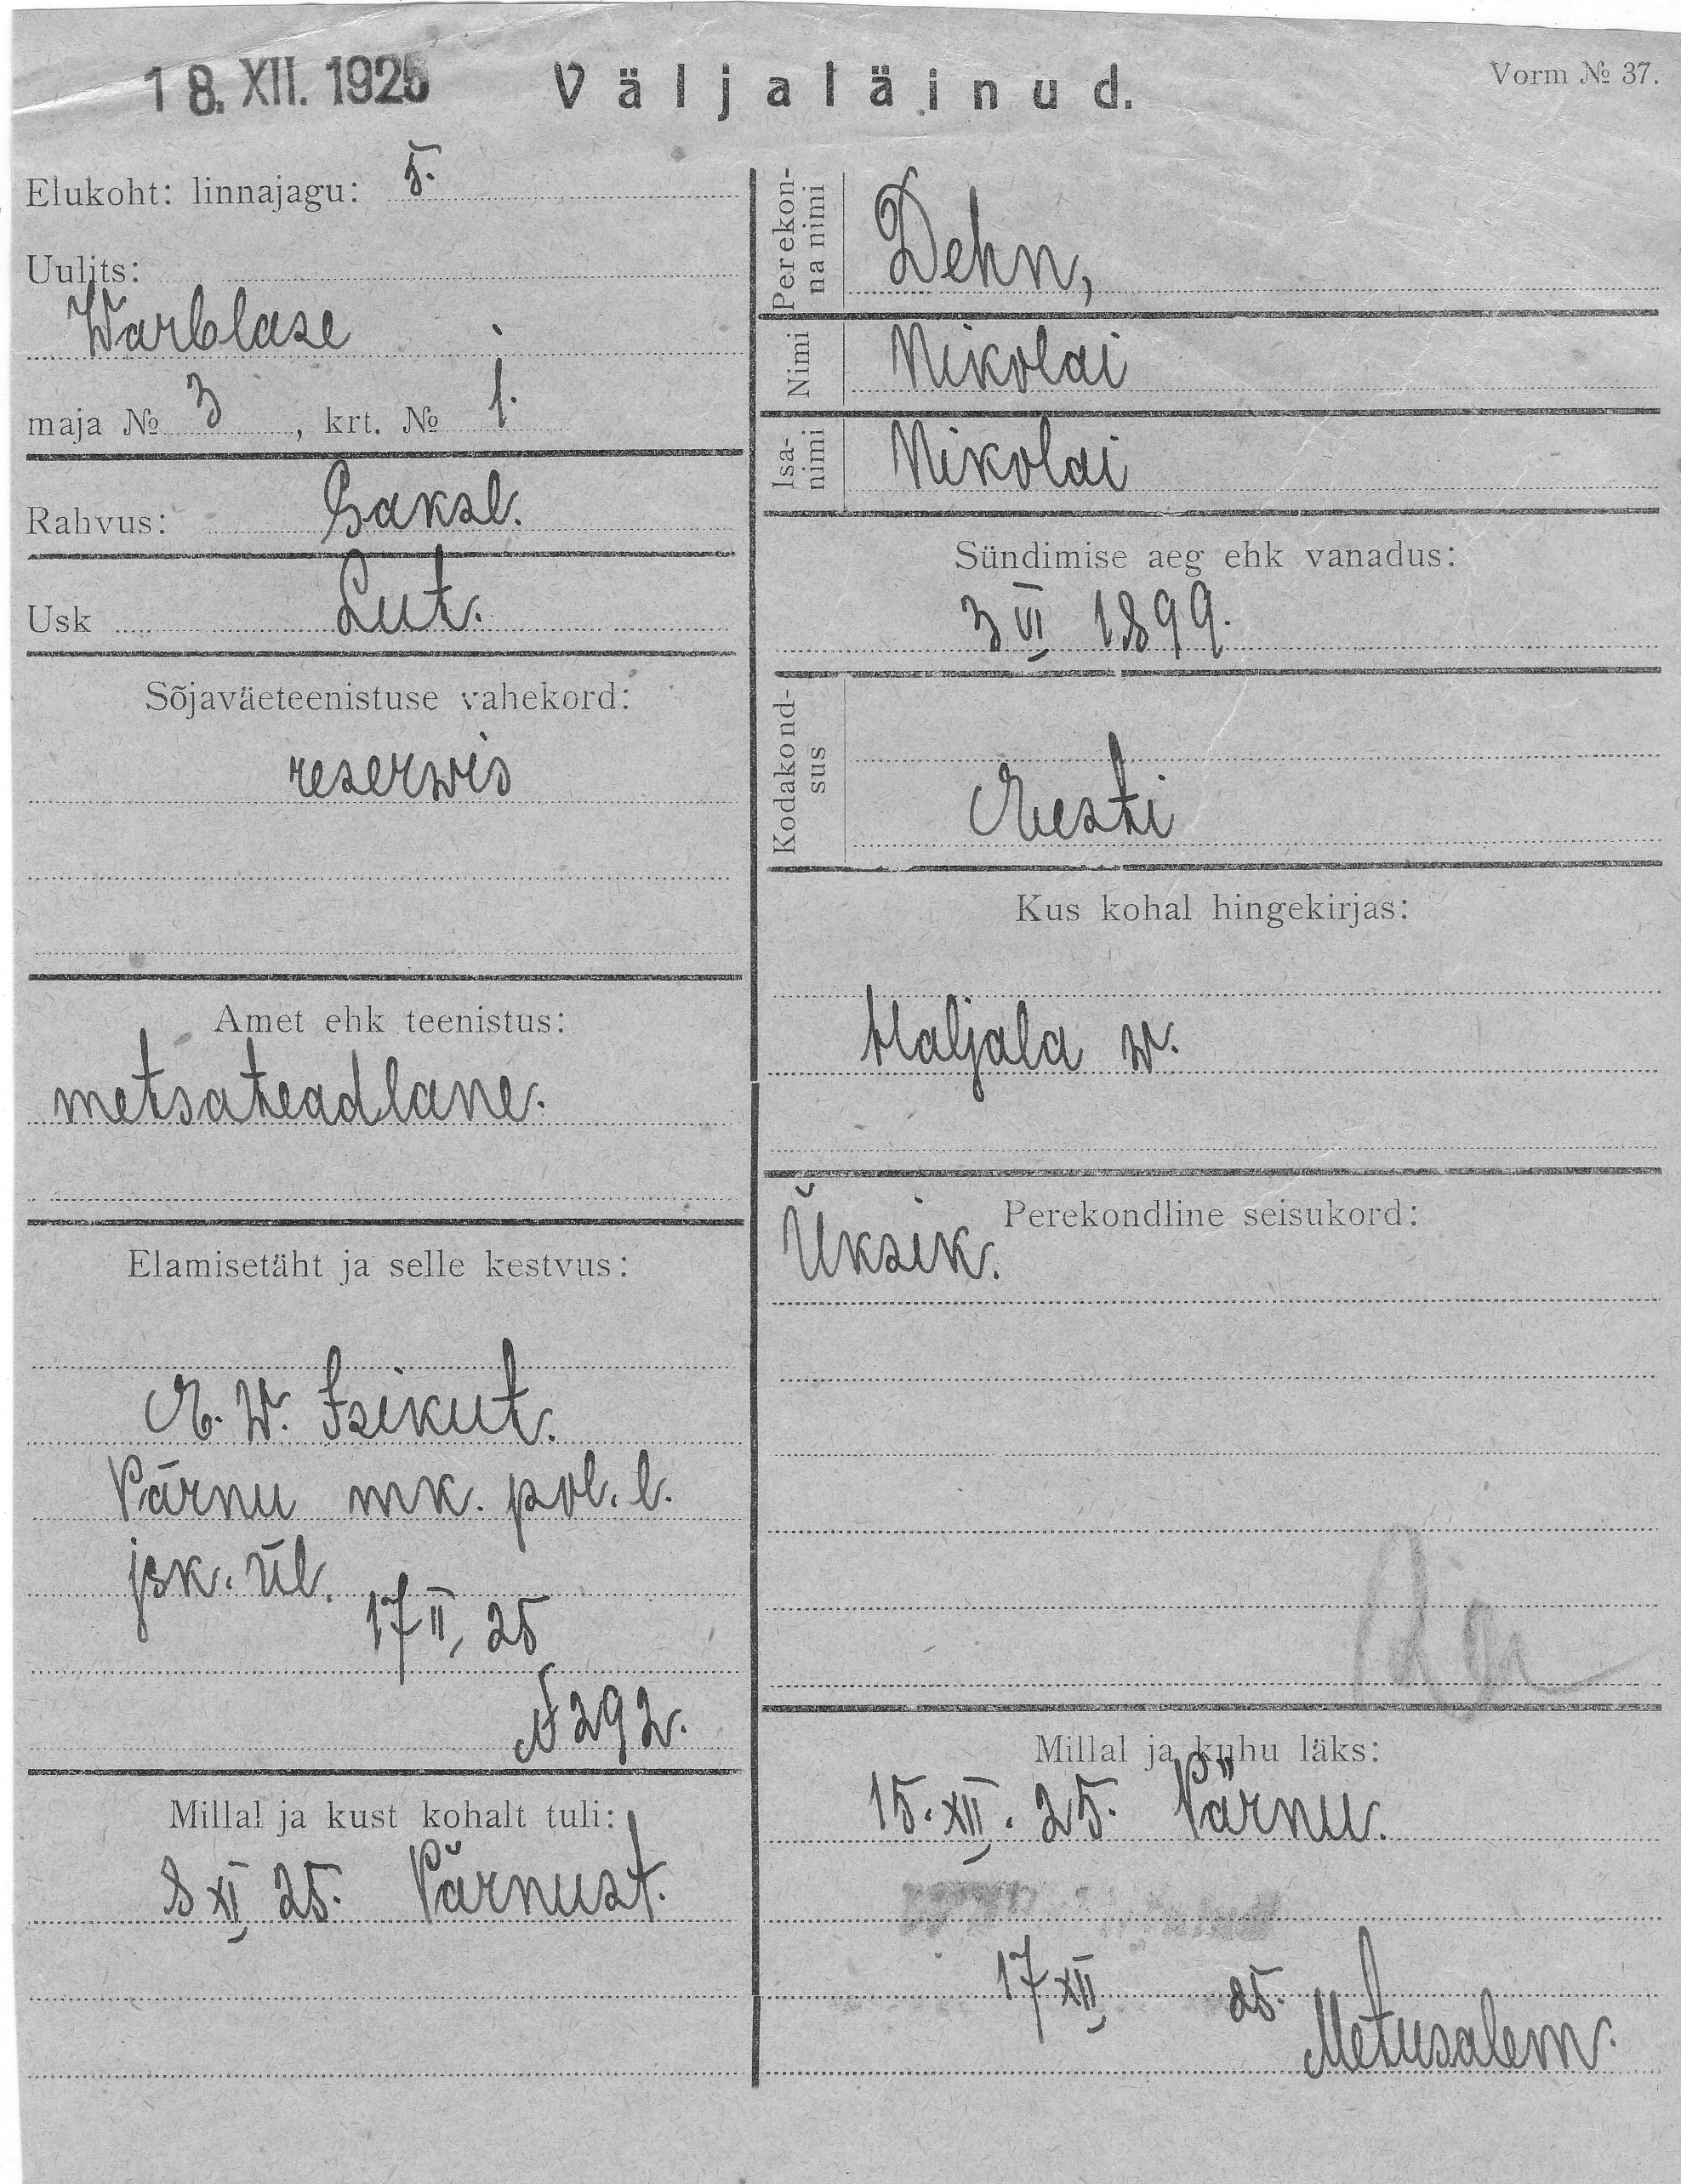 18. XII. 1925
Väljaläinud.
Vorm № 37.
Elukoht: linnajagu: 5.
Uulits:
Warblase
maja № 3, krt. № 1.
Rahvus: Saksl.
Usk Lut.
Sõjaväeteenistuse vahekord:
reserwis
Amet ehk teenistus:
metsateadlane.
Elamisetäht ja selle kestvus:
E. W. Isikut.
Pärnu mk. pol. l.
jsk. ül.
17 II 25
N 292.
Millal ja kust kohalt tuli:
8 XI 25. Pärnust.
Perekon-
na nimi
Dehn,
Nimi
Nikolai
Isa-
nimi
Nikolai
Sündimise aeg ehk vanadus:
3 VI 1899.
Kodakond-
sus
Eesti
Kus kohal hingekirjas:
Haljala w.
Perekondline seisukord:
Üksik.
Millal ja kuhu läks:
15. XII. 25. Pärnu.
17 XII 25.
Metusalem.